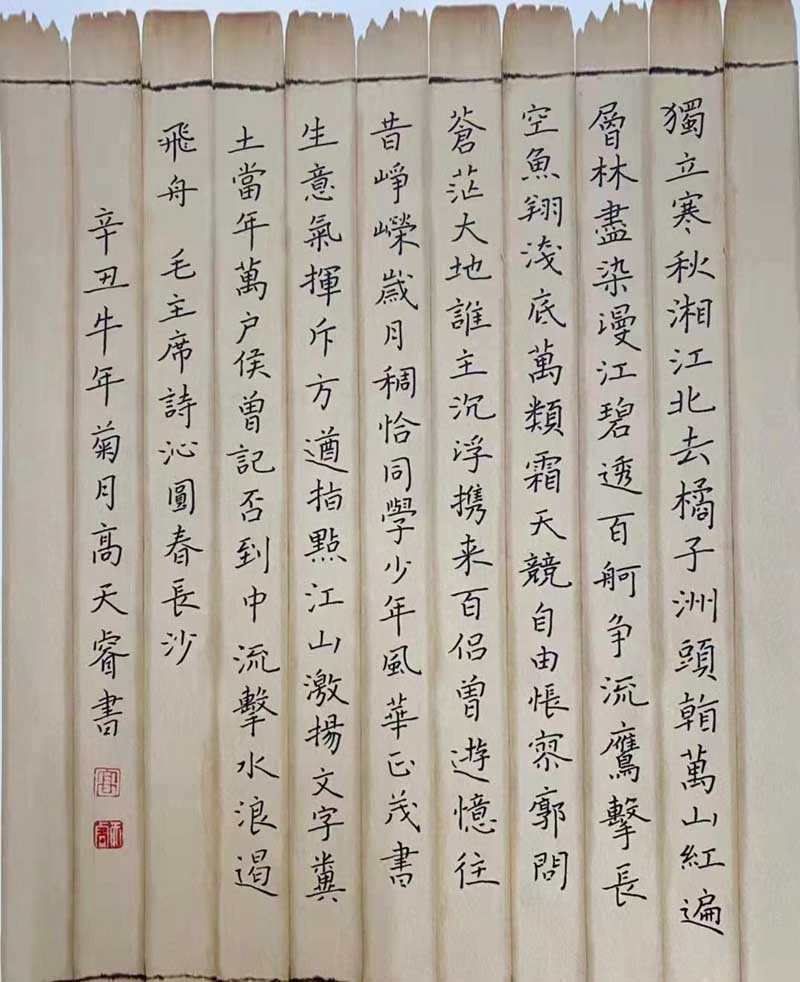 獨立寒秋湘江北去橘子洲頭看萬山紅遍
層林盡染漫江碧透百舸争流鷹擊長
空魚翔淺底萬類霜天競自由悵寥廓問
蒼茫大地誰主沉浮携来百侣曾遊憶往
昔崢嶸歲月稠恰同學少年風華正茂書
生意氣揮斥方遒指點江山激揚文字糞
土當年萬户侯曾記否到中流擊水浪遏
飛舟 毛主席詩沁圓春長沙
辛丑牛年菊月高天睿書